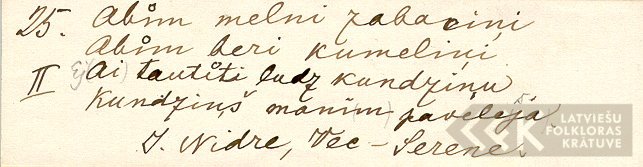 25. Abům melni zabaciņi
Abům beri kumeliņi
II Ej Ai tautīti ludz kundziņu
Kundziņš mānim pavēlēja
J. Nidre, Vec-Serene.
LATVIEŠU
FOLKLORAS
KRĀTUVE